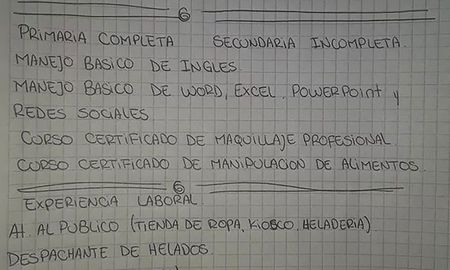 6
PRIMARIA COMPLETA SECUNDARIA INCOMPLETA.
MANEJO BASICO DE INGLES
MANEJO BASICO DE WORD, EXCEL, POWERPOINT y
REDES SOCIALES
CURSO CERTIFICADO DE MAQUILLAJE PROFESIONAL
CURSO CERTIFICADO DE MANIPULACION DE ALIMENTOS.
6
EXPERIENCIA LABORAL
At. AL PUBLICO (TIENDA DE ROPA, KIOSCO, HELADERIA)
DESPACHANTE DE HELADOS.